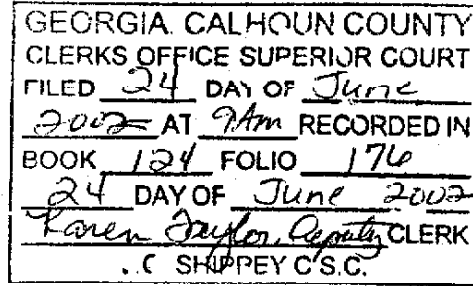 GEORGIA. CALHOUN COUNTY
CLERKS OFFICE SUPERIOR COURT
FILED 24 DAY OF June
2002 AT 9Am RECORDED IN
BOOK 124 FOLIO 176
24 DAY OF June 2002
Karen Taylor, Deputy CLERK
. C SHIPPEY C S.C.